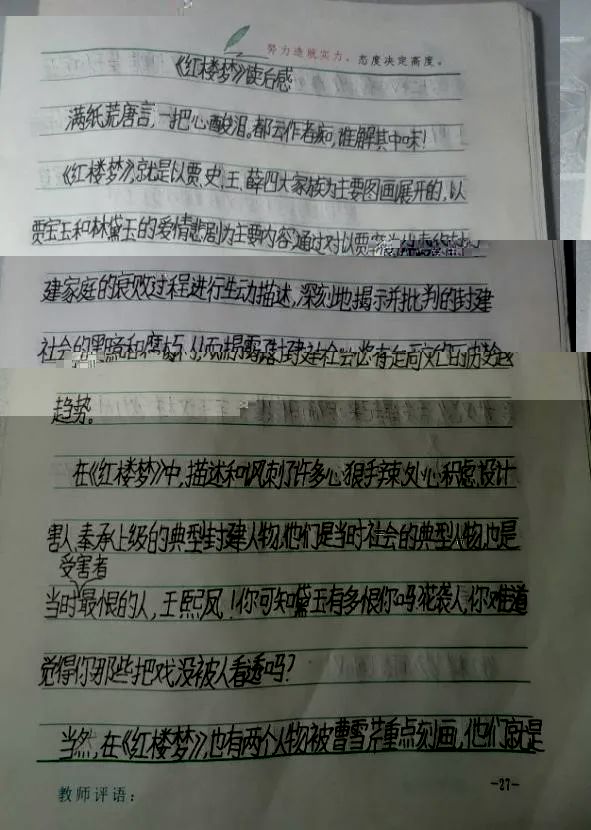 努力造就实力，态度决定高度。
《红楼梦》读后感
满纸荒唐言，一把心酸泪。都云作者痴，谁解其中味！
《红楼梦》，就是以贾、史、王、薛四大家族为主要图画展开的，以
贾宝玉和林黛玉的爱情悲剧为主要内容，通过对以贾
建家庭的衰败过程进行生动描述，深刻地揭示并批判的封建
社会的黑暗和腐朽，从而揭露封建社会必有走向灭亡的
趋势。
在《红楼梦》中，描述和讽刺了许多心狠手辣，处心积虑，设计
害人，奉承上级的典型封建人物，他们是当时社会的典型人物，也是
受害者
当时最恨的人，王熙凤，！你可知黛玉有多恨你吗，花袭人，你难道
觉得你那些把戏没被人看透吗？
当然，在《红楼梦》，也有两个人物被曹雪芹重点刻画，他们就是
教师评语：
-27-